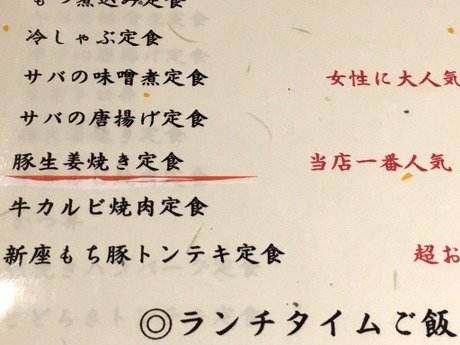 もつ煮込み定食
冷しゃぶ定食
サバの味噌煮定食 女性に大人気
サバの唐揚げ定食
豚生姜焼き定食 当店一番人気
牛カルビ焼肉定食
新座もち豚トンテキ定食 超お
◎ランチタイムご飯